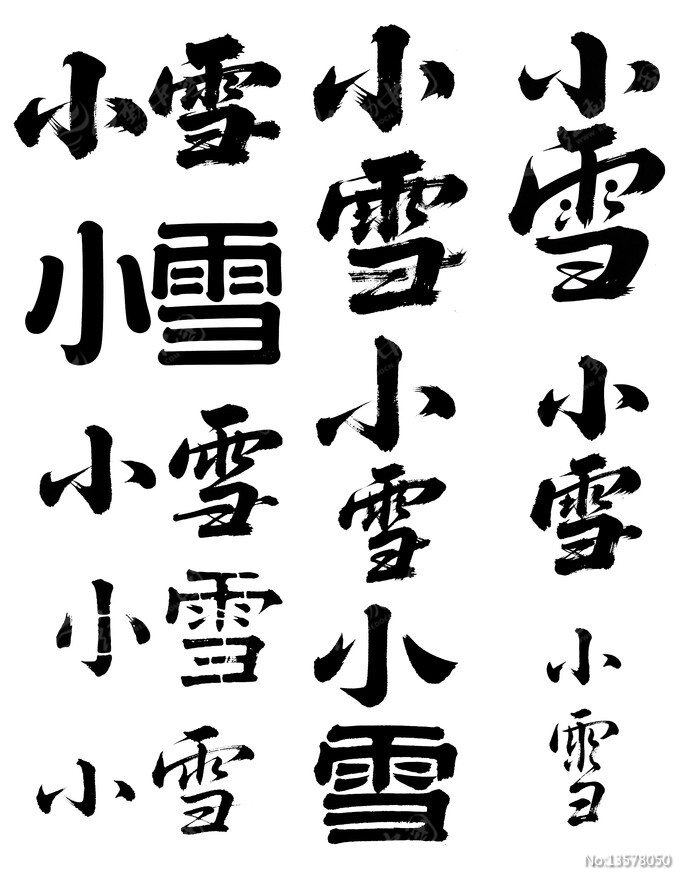 小雪
小雪
小雪
小雪
小雪
小雪
小雪
小雪
小雪
小雪
小雪
No:13578050